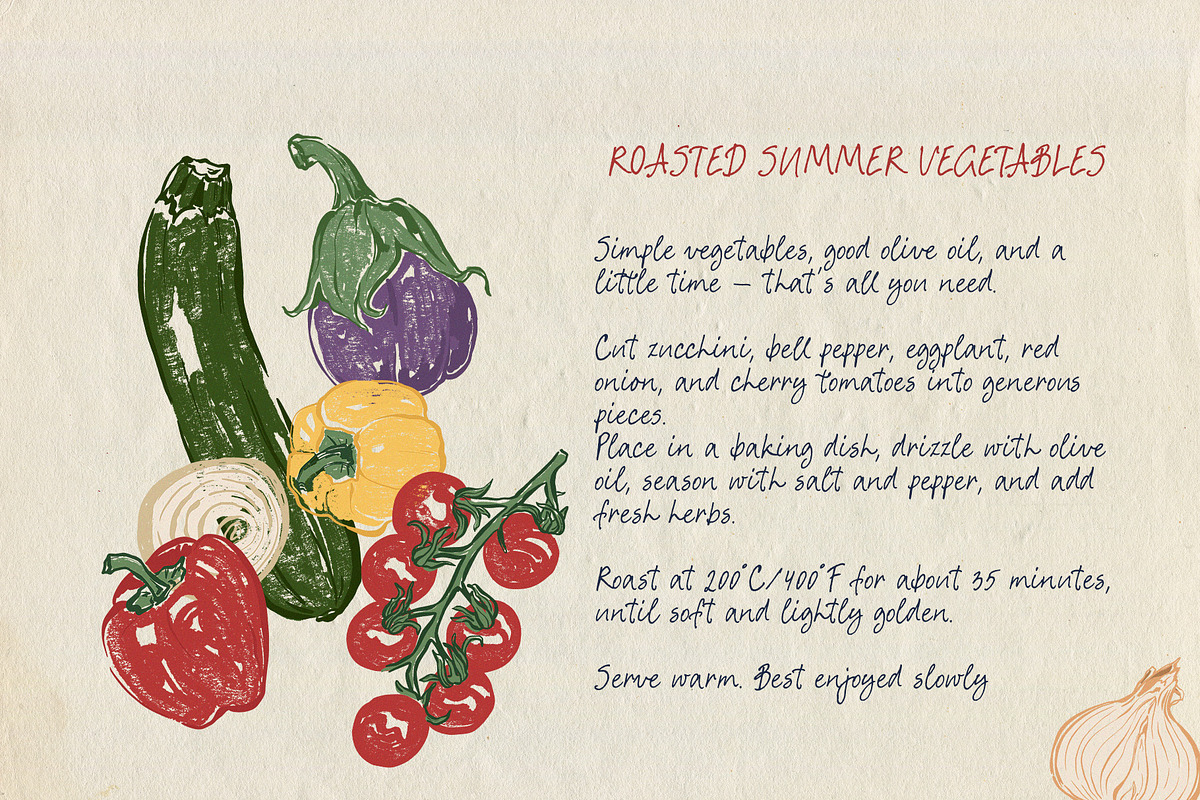 ROASTED SUMMER VEGETABLES
Simple vegetables, good olive oil, and a
little time – that's all you need.
Cut zucchini, bell pepper, eggplant, red
onion, and cherry tomatoes into generous
pieces.
Place in a baking dish, drizzle with olive
oil, season with salt and pepper, and add
fresh herbs.
Roast at 200°C/400°F for about 35 minutes,
until soft and lightly golden.
Serve warm. Best enjoyed slowly